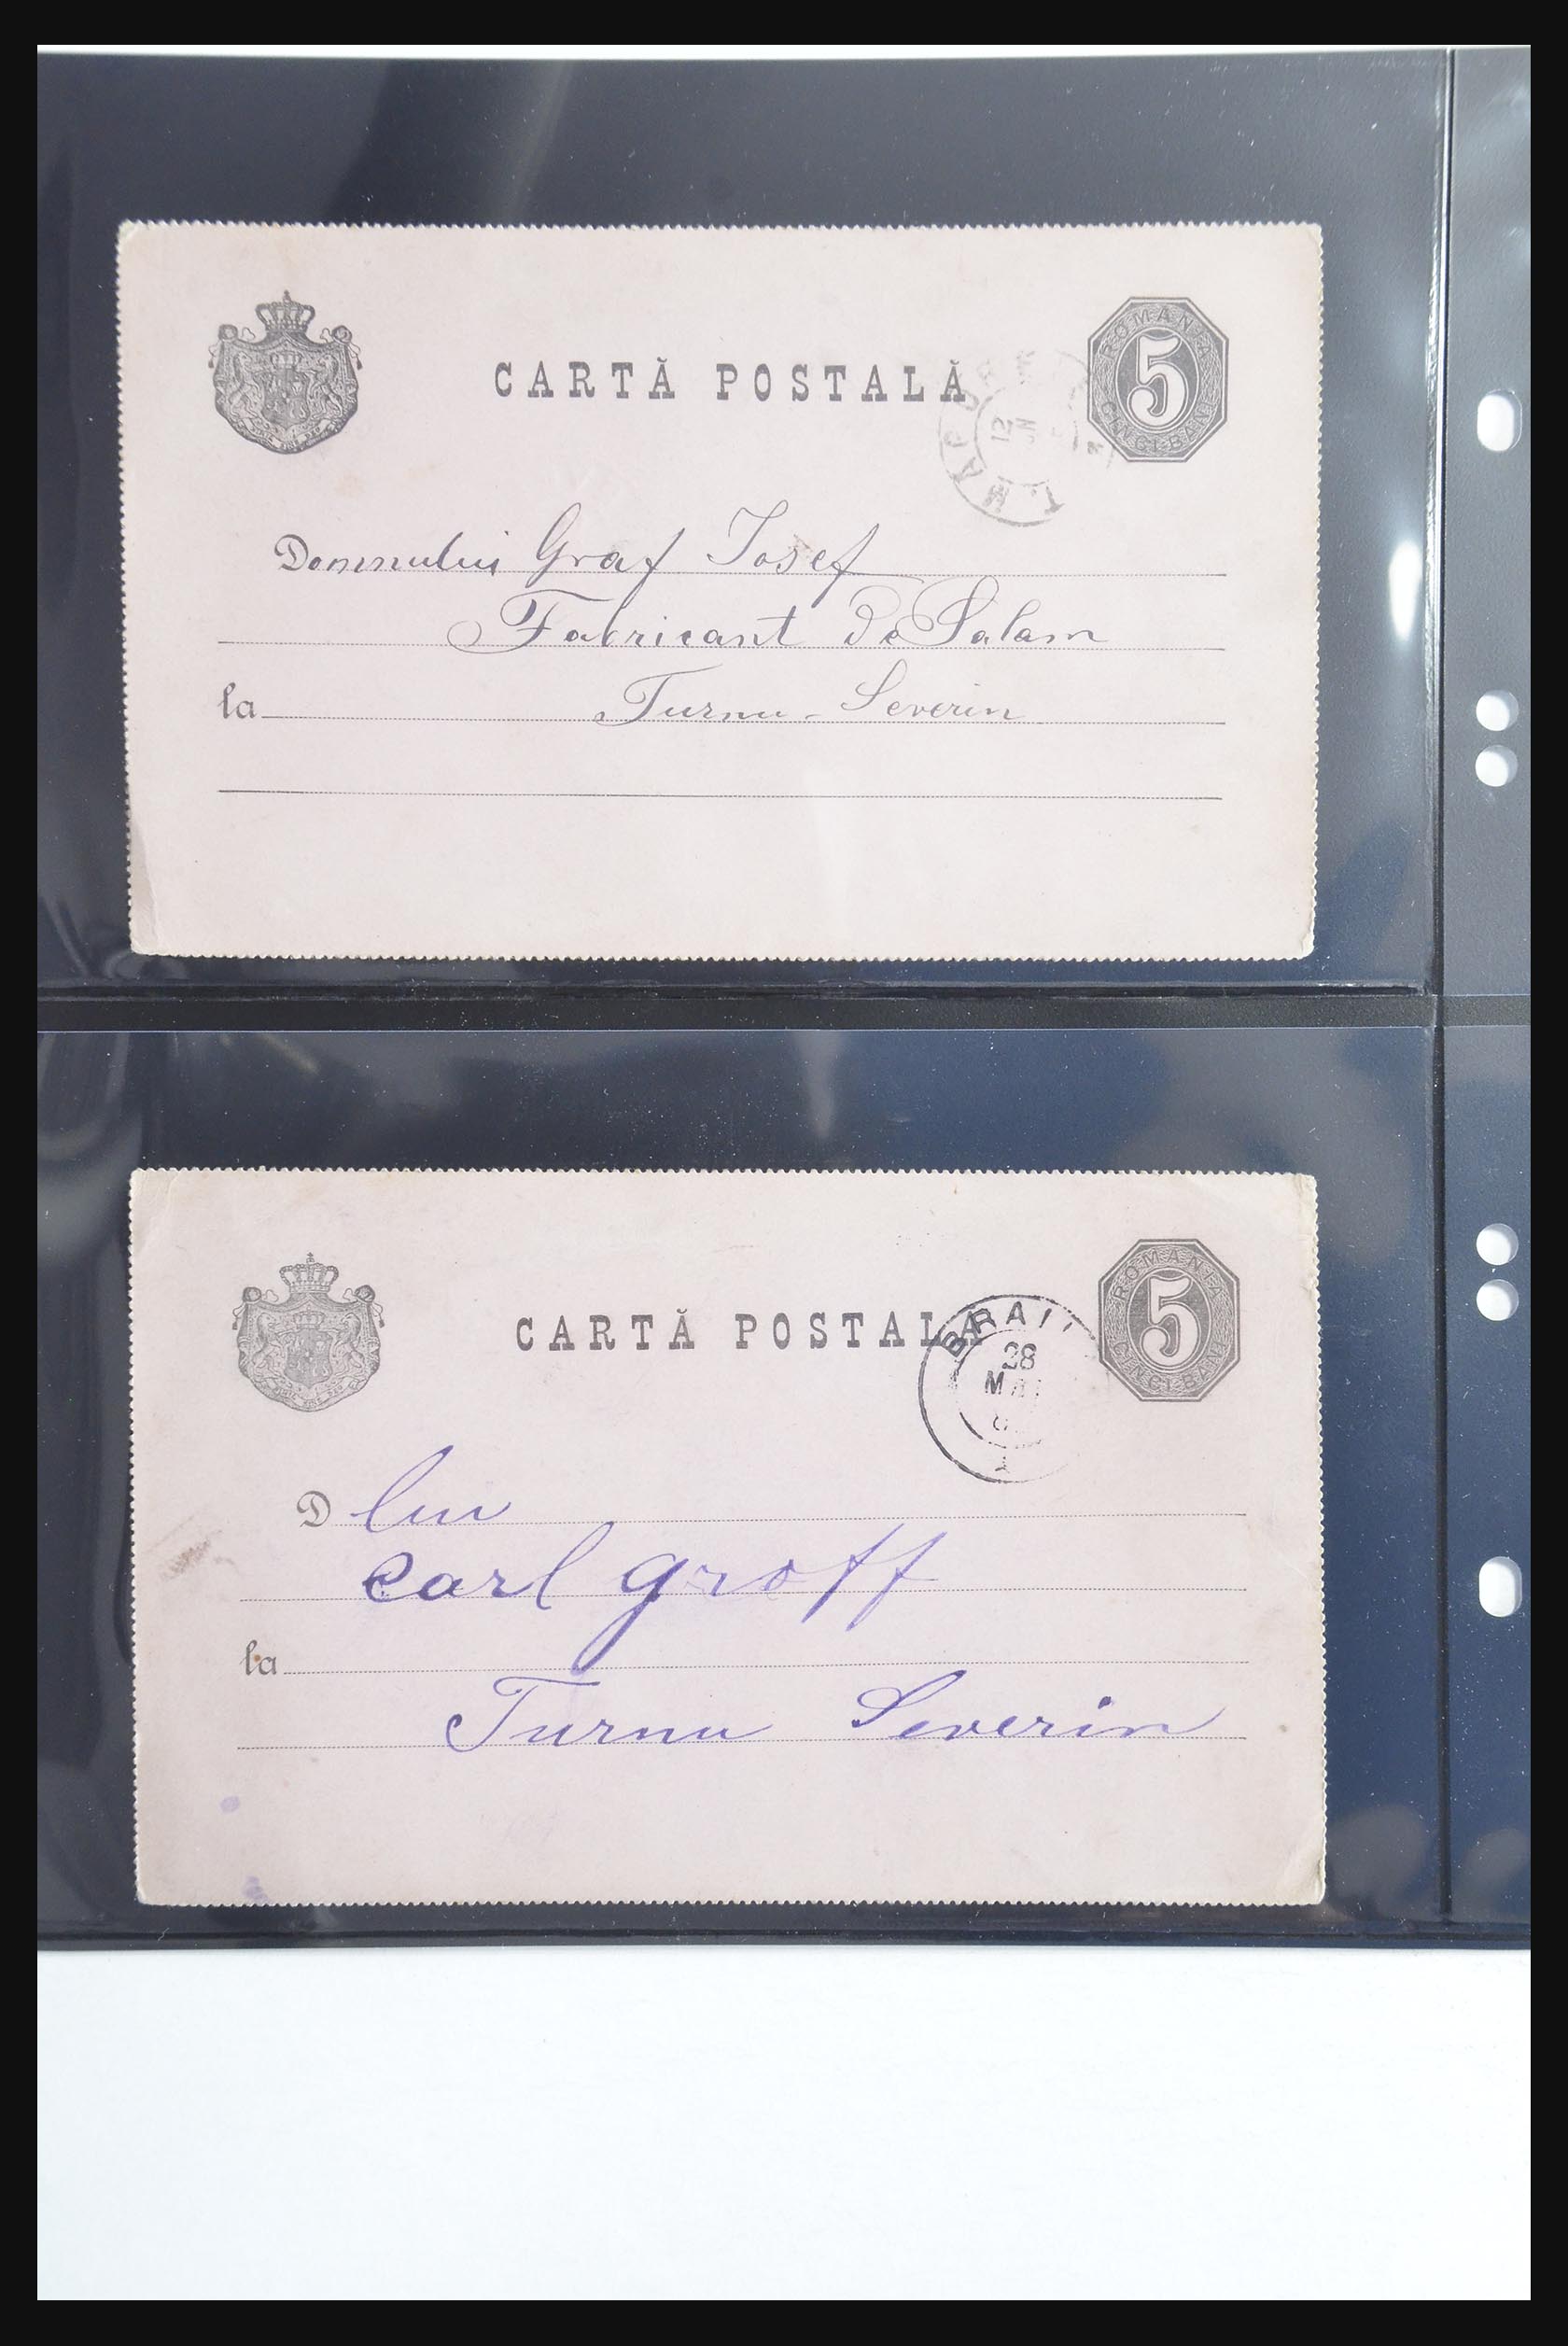 CARTĂ POSTALĂ
ROMANIA
5
CINCI BANI
12
Domnului Graf Iosef
Fabricant de Salam
la Turnu-Severin
CARTĂ POSTALĂ
ROMANIA
5
CINCI BANI
BRAIL
28
MAI
1
D lui
Carl Groff
la
Turnu Severin